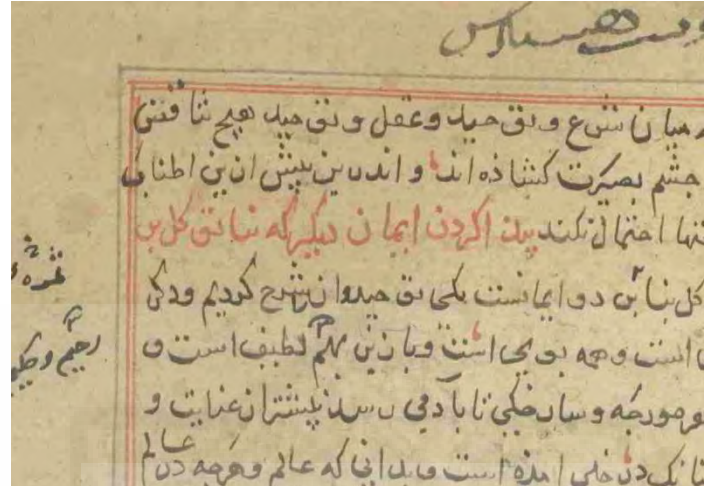 میان شرع و توحید و عقل و توحید هیچ تناقض
چشم بصیرت کشاذه اند و اندرین بیش ازین اطناب
تنها احتمال نکند پیدا کردن ایمان دیگر که بنا توکل بر
کل بنا بر دو ایمانست یکی توحید و ان شرح کردیم و دکر
است و همه بوی است و با این همه لطیف است و
هر مورچه و سارخکی تا بآدمی رسد بیشتر از عنایت و
انک در خبر امذه است و بدانی که عالم و هرچه در عالم
رحیم و حکیم